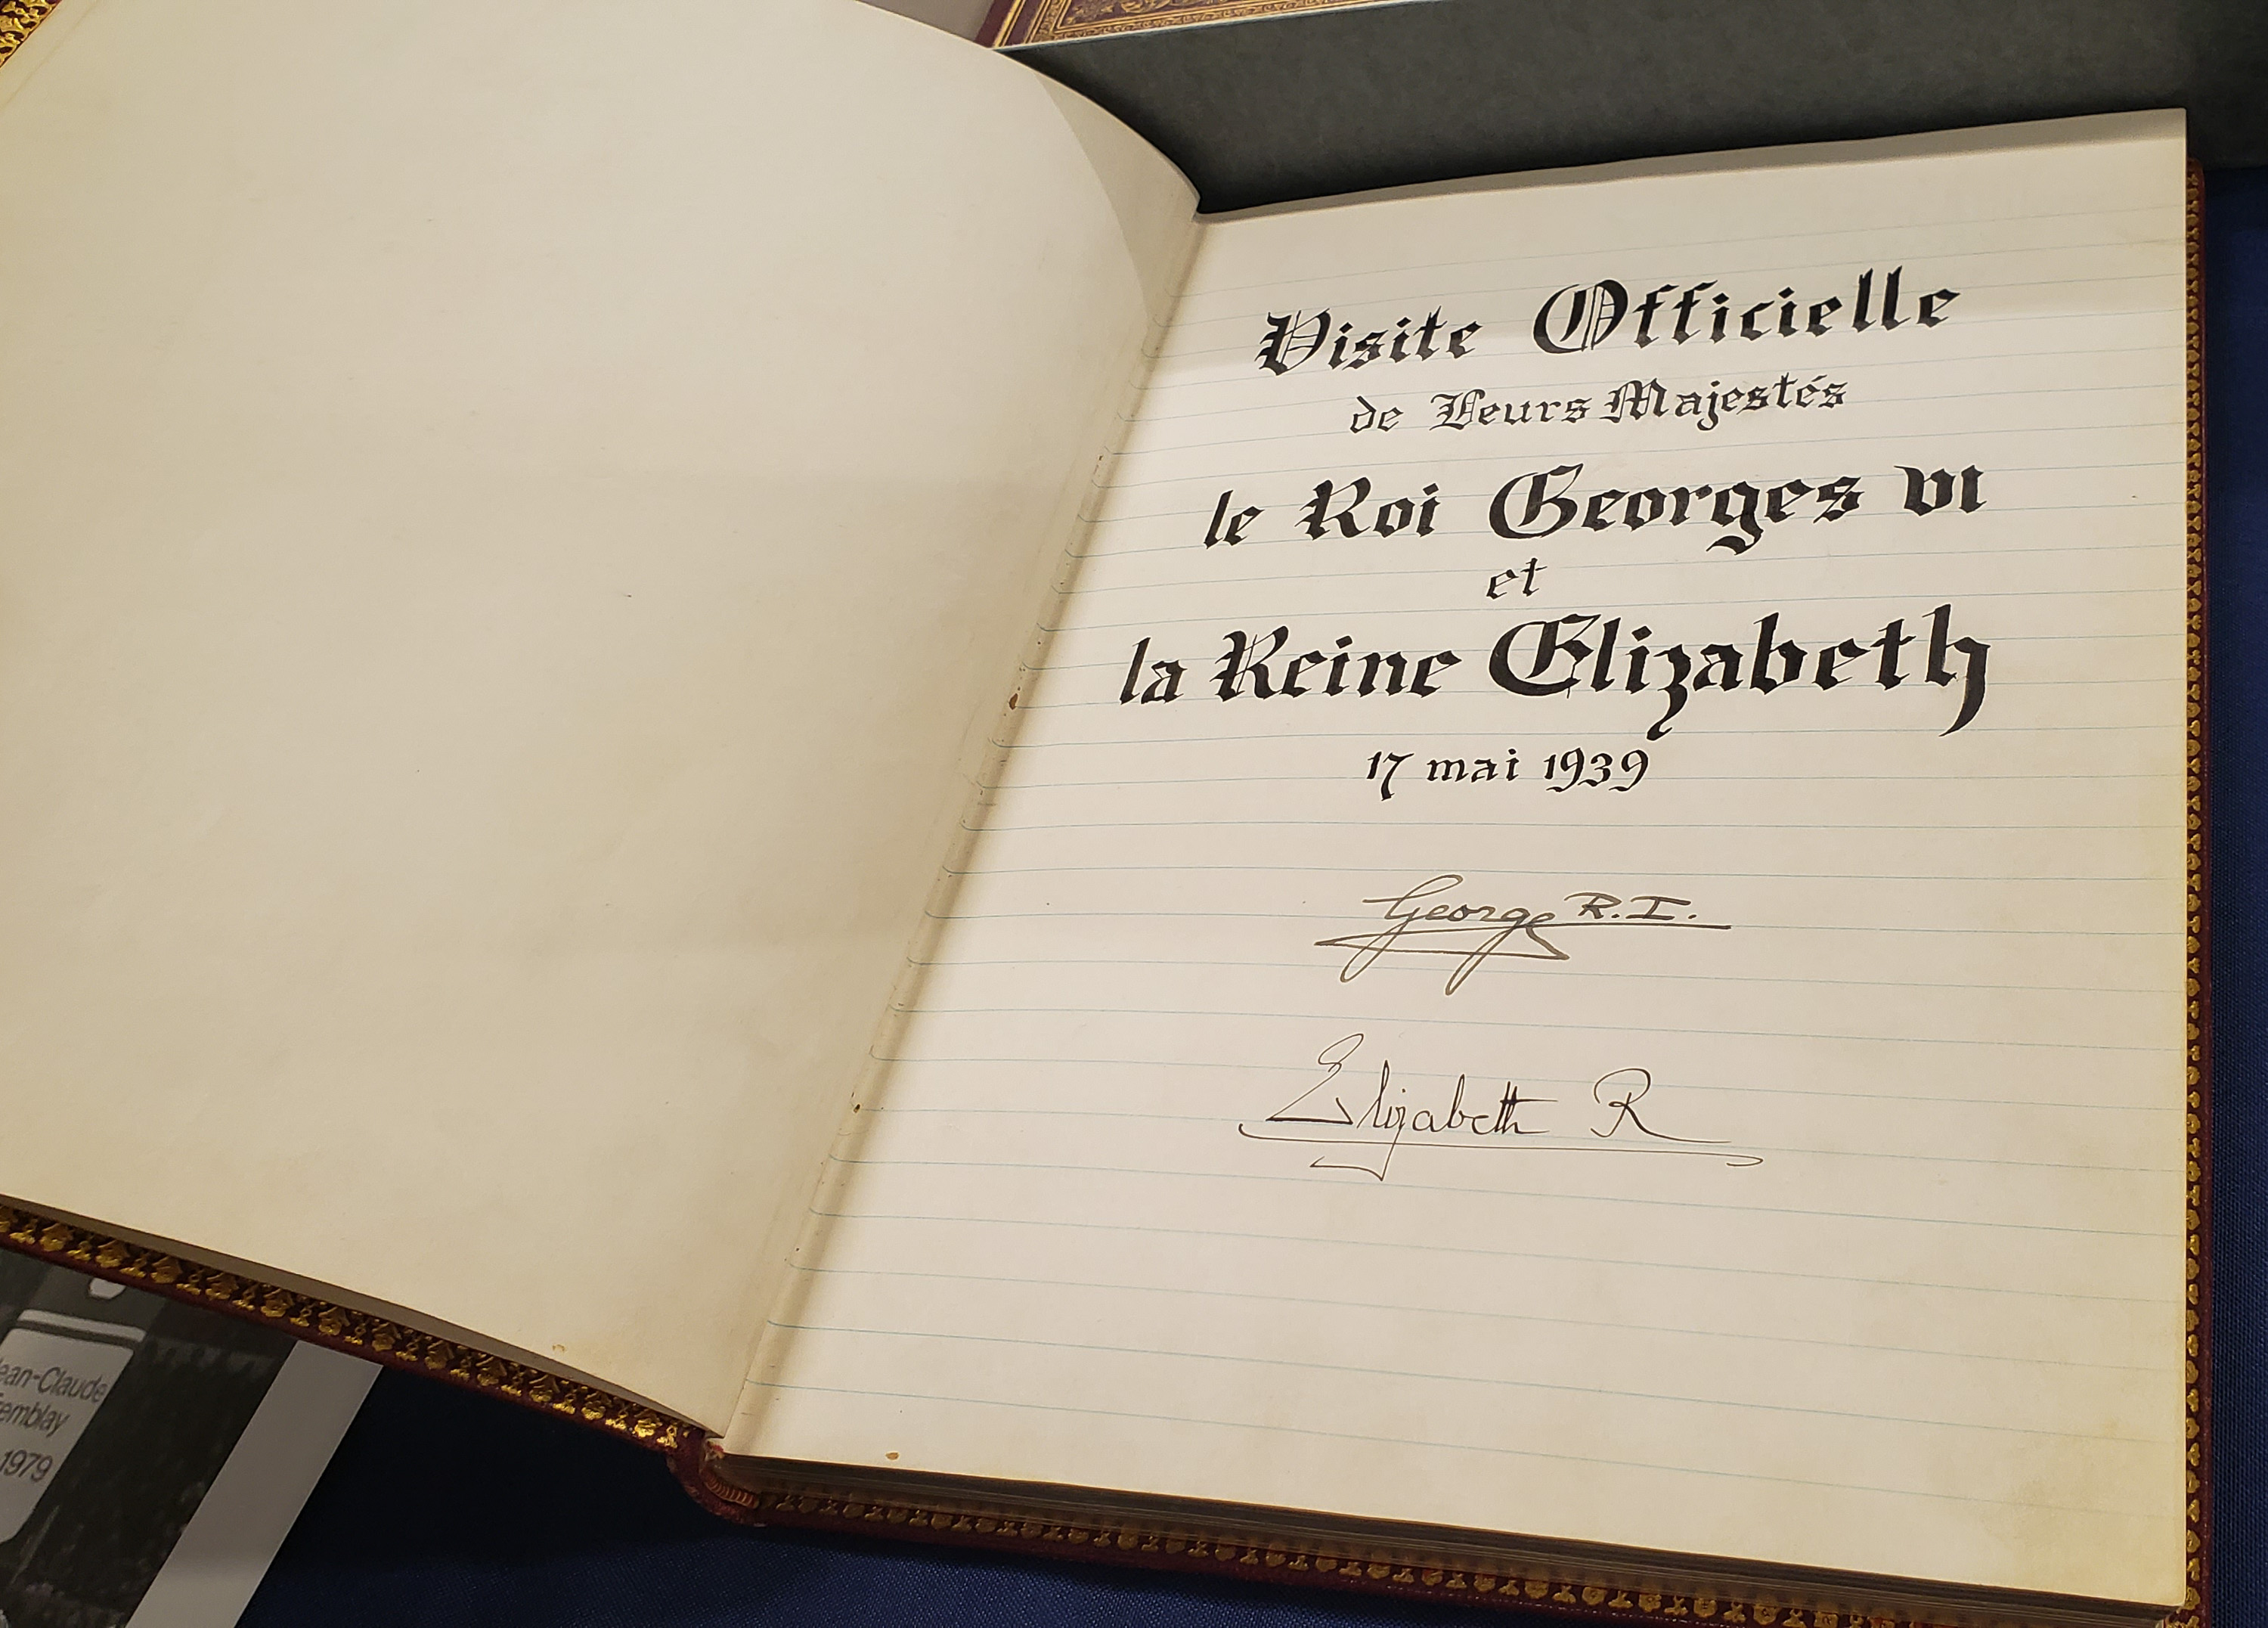 Visite Officielle
de Leurs Majestés
le Roi Georges VI
et
la Reine Elizabeth
17 mai 1939
George R.I.
Elizabeth R
1979